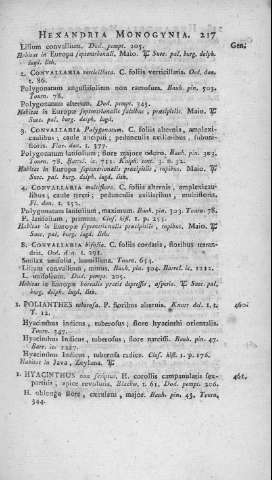 HEXANDRIA MONOGYNIA. 217
Lilium convallium. Dod. pempt. 205. Gen:
Habitat in Europa septentrionali, Maio. ♃ Succ. pal. burg. delph.
lugd. lith.
2. CONVALLARIA verticillata. C. foliis verticillatis. Oed. dan.
t. 86.
Polygonatum angustifolium non ramosum. Bauh. pin. 303.
Tourn. 78.
Polygonatum alterum. Dod. pempt. 345.
Habitat in Europae septentrionalis Maio. ♃
Succ. pal. burg. delph. lugd.
3. CONVALLARIA Polygonatum. C. foliis alternis, amplexi-
caulibus; caule ancipiti; pedunculis axillaribus, subuni-
floris. Flor. dan. t. 377.
Polygonatum latifolium, flore majore odoro. Bauh. pin. 303.
Tourn. 78. Barrel. ic. 711. Kniph. cent. 3. n. 32.
Habitat in Europae septentrionalis rupibus. Maio. ♃
Succ. pal. burg. delph. lugd. lith.
4. CONVALLARIA multiflora. C. foliis alternis, amplexicau-
libus; caule tereti; pedunculis axillaribus, multifloris.
Fl. dan. t. 152.
Polygonatum latifolium, maximum. Bauh. pin. 303. Tourn. 78.
P. latifolium, I primum. Clus. hist. I. p. 275.
Habitat in Europae septentrionalis rupibus. Maio. ♃
Succ. pal. burg. lugd. lith.
8. CONVALLARIA bifolia. C. foliis cordatis, floribus tetran-
dris. Oed. dan. t. 291.
Smilax unifolia, humillima. Tourn. 654.
Lilium convallium, minus. Bauh. pin. 304. Barrel. ic. 1212.
L. unifolium. Dod. pempt. 205.
Habitat in Europae borealis pratis depressis, asperis. ♃ Succ. pal.
burg. delph. lugd. lith.
1. POLIANTHES tuberosa. P. floribus alternis. Knorr del. t. 1.
T. 12.
Hyacinthus Indicus, tuberosus; flore hyacinthi orientalis.
Tourn. 347.
Hyacinthus Indicus, tuberosus, flore narcissi. Bauh. pin. 47.
Barr. ic. 1227.
Hyacinthus Indicus, tuberosa radice. Clus. hist. I. p. 176.
Habitat in Java, Zeylana. ♃
1. HYACINTHUS non scriptus. H. corollis campanulatis sex-
partitis, apice revolutis. Blackw. t. 61. Dod. pempt. 206. 461.
H. oblongo flore, caeruleus, major. Bauh. pin. 43. Tourn.
344.